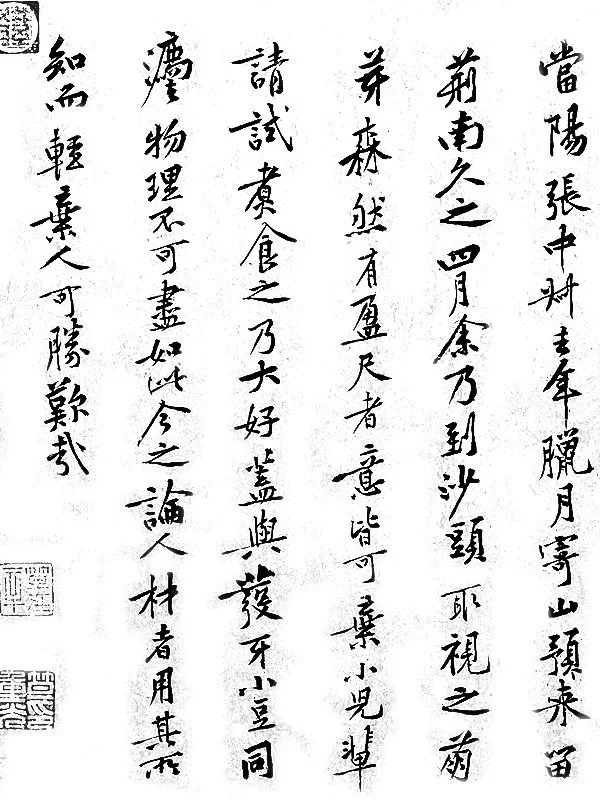 當陽張中叔去年臘月寄山預來留
荊南久之四月余乃到沙頭取視之萌
芽森然有盈尺者意皆可棄小兒輩
請試煮食之乃大好蓋與發牙小豆同
物理不可盡如此今之論人材者用其所
知而輕棄人可勝歎哉